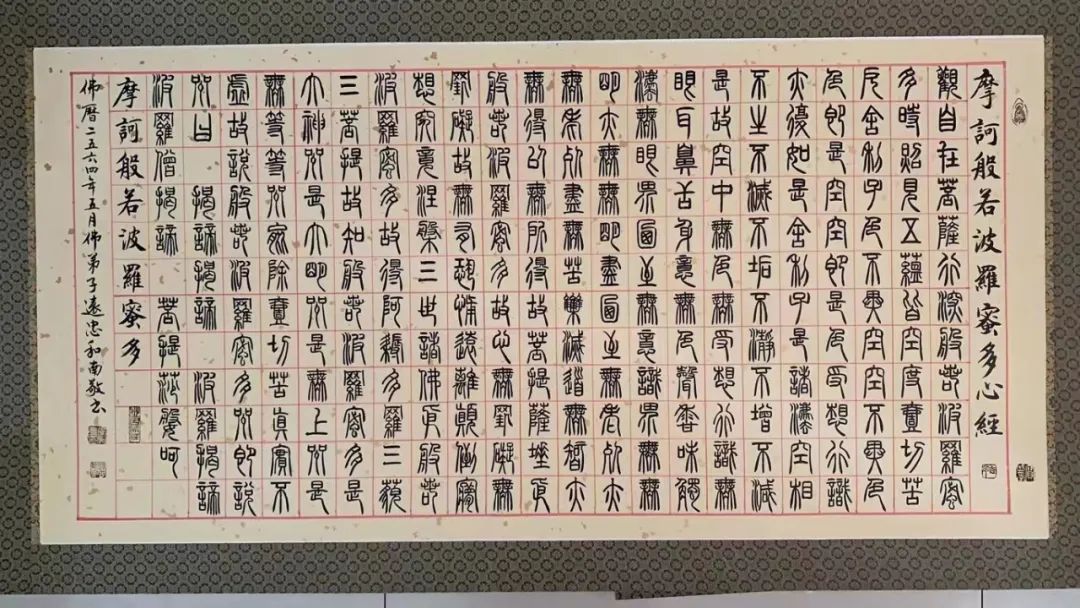 摩訶般若波羅蜜多心經
觀自在菩薩行深般若波羅蜜
多時照見五蘊皆空度壹切苦
厄舍利子色不異空空不異色
色即是空空即是色受想行識
亦復如是舍利子是諸法空相
不生不滅不垢不淨不增不減
是故空中無色無受想行識無
眼耳鼻舌身意無色聲香味觸
法無眼界乃至無意識界無無
明亦無無明盡乃至無老死亦
無老死盡無苦集滅道無智亦
無得以無所得故菩提薩埵依
般若波羅蜜多故心無罣礙無
罣礙故無有恐怖遠離顛倒夢
想究竟涅槃三世諸佛依般若
波羅蜜多故得阿耨多羅三藐
三菩提故知般若波羅蜜多是
大神咒是大明咒是無上咒是
無等等咒能除壹切苦真實不
虛故說般若波羅蜜多咒即說
咒曰 揭諦揭諦 波羅揭諦
波羅僧揭諦 菩提莎婆呵
摩訶般若波羅蜜多
佛曆二五六四年五月佛弟子遠忠和南敬書